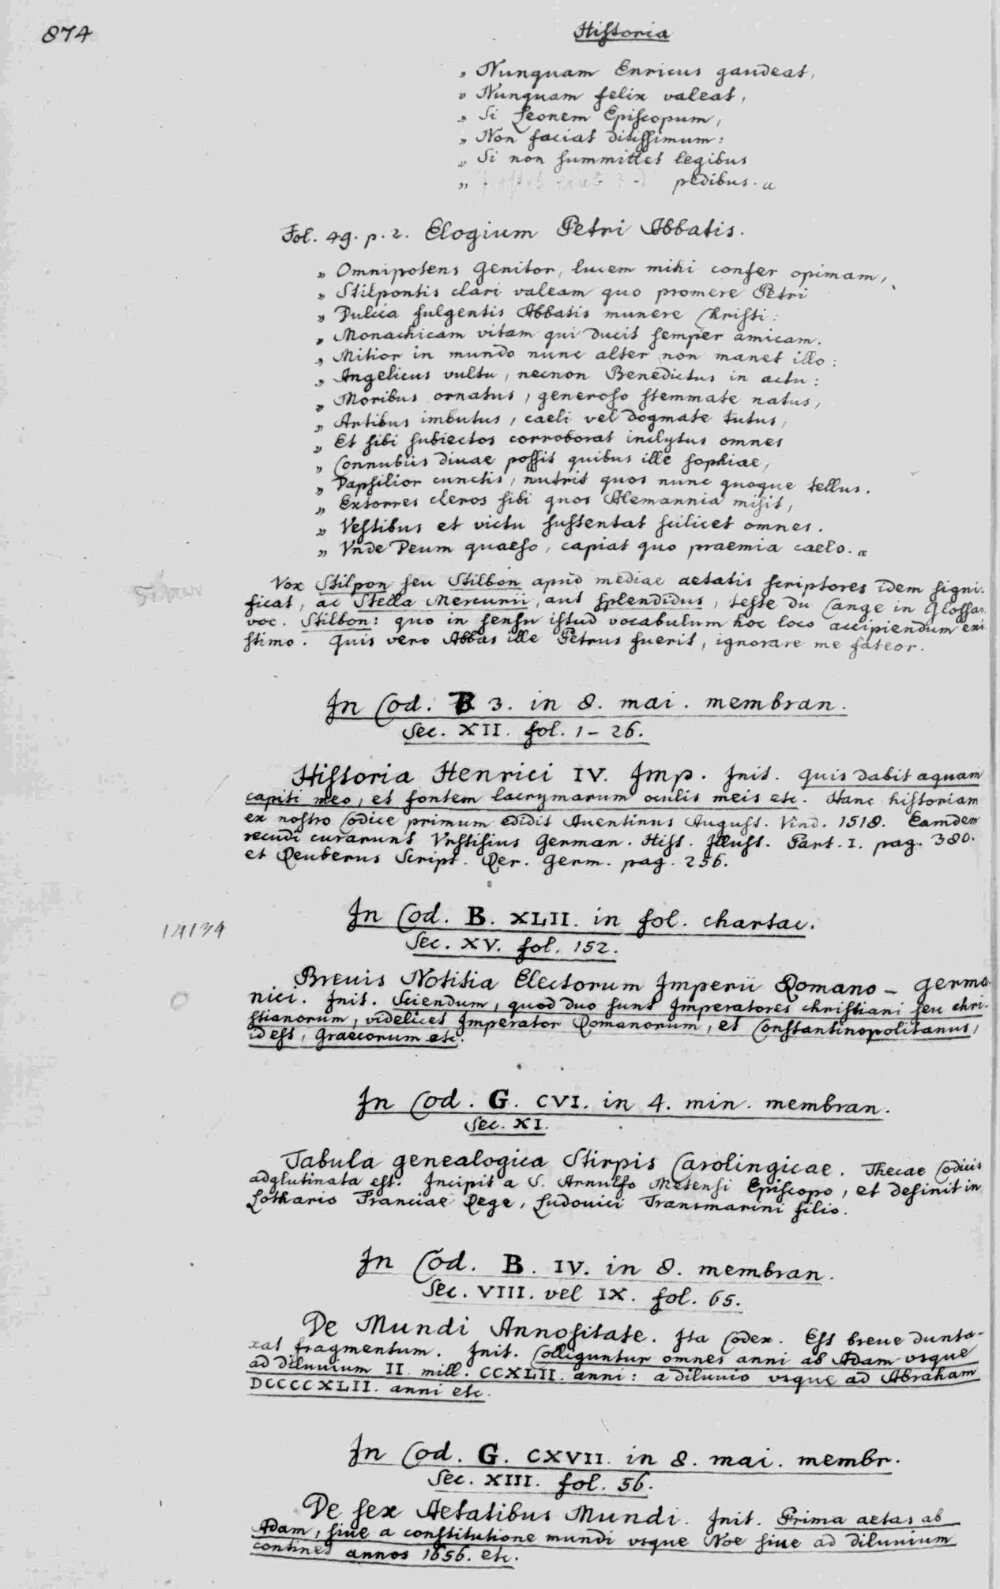 874
Historia
„ Nunquam Enricus gaudeat,
„ Nunquam felix valeat,
„ Si Leonem Episcopum,
„ Non faciat ditissimum:
„ Si non summittet legibus
„ pedibus. „
Fol. 49. p. 2. Elogium Petri Abbatis.
„ Omnipotens Genitor, lucem mihi confer opimam,
„ Stilpontis clari valeam quo promere Petri
„ Dulcia fulgentis Abbatis munere Christi:
„ Monachicam vitam qui ducit semper amicam.
„ Mitior in mundo nunc alter non manet illo:
„ Angelicus vultu, necnon Benedictus in actu:
„ Moribus ornatus, generoso stemmate natus,
„ Artibus imbutus, caeli vel dogmate tutus,
„ Et sibi subiectos corroborat inclytus omnes
„ Connubiis divae possit quibus ille sophiae,
„ Dapsilior cunctis, nutrit quos nunc quoque tellus.
„ Extorres cleros sibi quos Alemannia misit,
„ Vestibus et victu sustentat scilicet omnes.
„ Vnde Deum quaeso, capiat quo praemia caelo. „
Vox Stilpon seu Stilbon apud mediae aetatis scriptores idem signi-
ficat, ac Stella Mercurii, aut splendidus, teste du Cange in Glossar.
voc. Stilbon: quo in sensu istud vocabulum hoc loco accipiendum exi-
stimo. Quis vero Abbas ille Petrus fuerit, ignorare me fateor.
In Cod. B 3. in 8. mai. membran.
Sec. XII. fol. 1-26.
Historia Henrici IV. Imp. Init. Quis dabit aquam
capiti meo, et fontem lacrymarum oculis meis etc. Hanc historiam
ex nostro Codice primum edidit Aventinus August. Vind. 1518. Eamdem
recudi curarunt Vrstisius German. Hist. Illust. Part. I. pag. 380.
et Reuberus Script. Rer. Germ. pag. 256.
14134
In Cod. B. XLII. in fol. chartac.
Sec. XV. fol. 152.
Brevis Notitia Electorum Imperii Romano-Germa-
nici. Init. Sciendum, quod duo sunt Imperatores christiani seu chri-
stianorum, videlicet Imperator Romanorum, et Constantinopolitanus,
id est, Graecorum etc.
In Cod. G. CVI. in 4. min. membran.
Sec. XI.
Tabula genealogica Stirpis Carolingicae. Thecae Codicis
adglutinata est. Incipit a S. Arnulfo Metensi Episcopo, et definit in
Lothario Franciae Rege, Ludovici Transmarini filio.
In Cod. B. IV. in 8. membran.
Sec. VIII. vel IX. fol. 65.
De Mundi Annositate. Ita Codex. Est breve dunta-
xat fragmentum. Init. Colliguntur omnes anni ab Adam vsque
ad diluvium II. mill. CCXLII. anni: a diluvio vsque ad Abraham
DCCCCXLII. anni etc.
In Cod. G. CXVII. in 8. mai. membr.
Sec. XIII. fol. 56.
De sex Aetatibus Mundi. Init. Prima aetas ab
Adam, sive a constitutione mundi vsque Noe sive ad diluvium
continet annos 1656. etc.